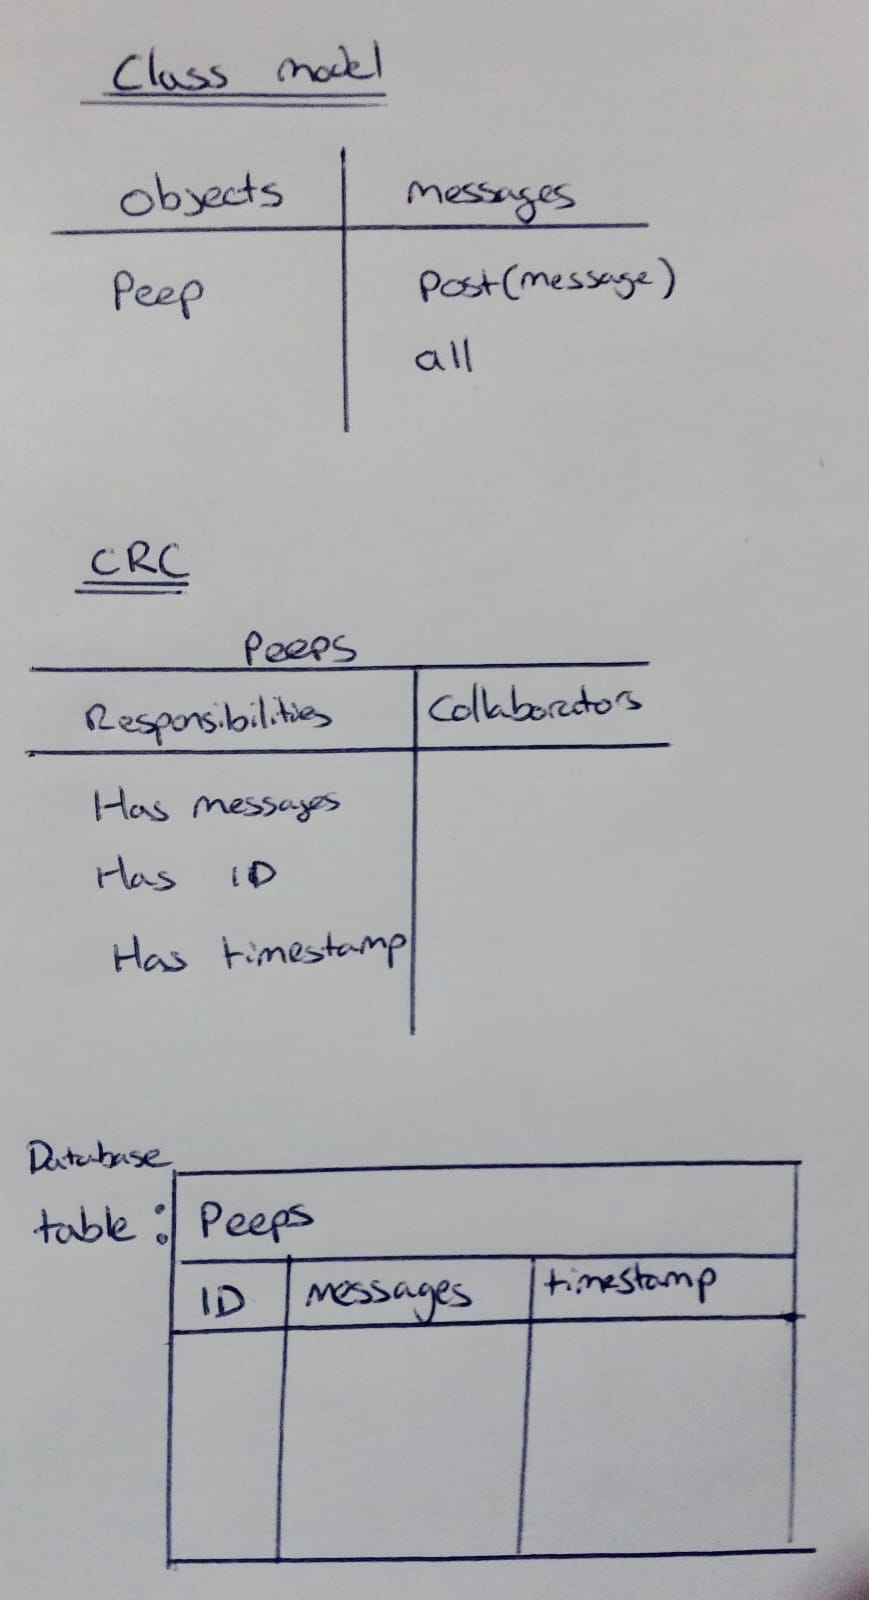 Class model
objects messages
Peep Post(message)
all
CRC
Peeps
Responsibilities Collaborators
Has messages
Has ID
Has timestamp
Database
table: Peeps
ID messages timestamp